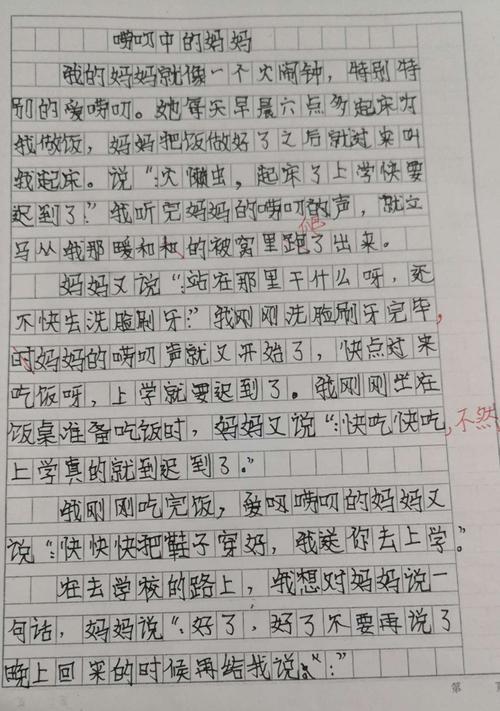 唠叨中的妈妈
我的妈妈就像一个大闹钟，特别特
别的爱唠叨。她每天早晨六点多起床为
我做饭，妈妈把饭做好了之后就过来叫
我起床。说“：大懒虫，起床了上学快要
迟到了！”我听完妈妈的唠叨的声，就立
马从我那暖和和的被窝里跑了出来。
爬
妈妈又说“：站在那里干什么呀，还
不快去洗脸刷牙？”我刚刚洗脸刷牙完毕，
时妈妈的唠叨声就又开始了，快点过来
吃饭呀，上学就要迟到了。我刚刚坐在
饭桌准备吃饭时，妈妈又说“：快吃快吃，不然
上学真的就到迟到了。”
我刚刚吃完饭，爱唠叨的妈妈又
说“：快快快把鞋子穿好，我送你去上学。”
在去学校的路上，我想对妈妈说一
句话，妈妈说“：好了，好了不要再说了
晚上回来的时候再给我说。“：”
第 页